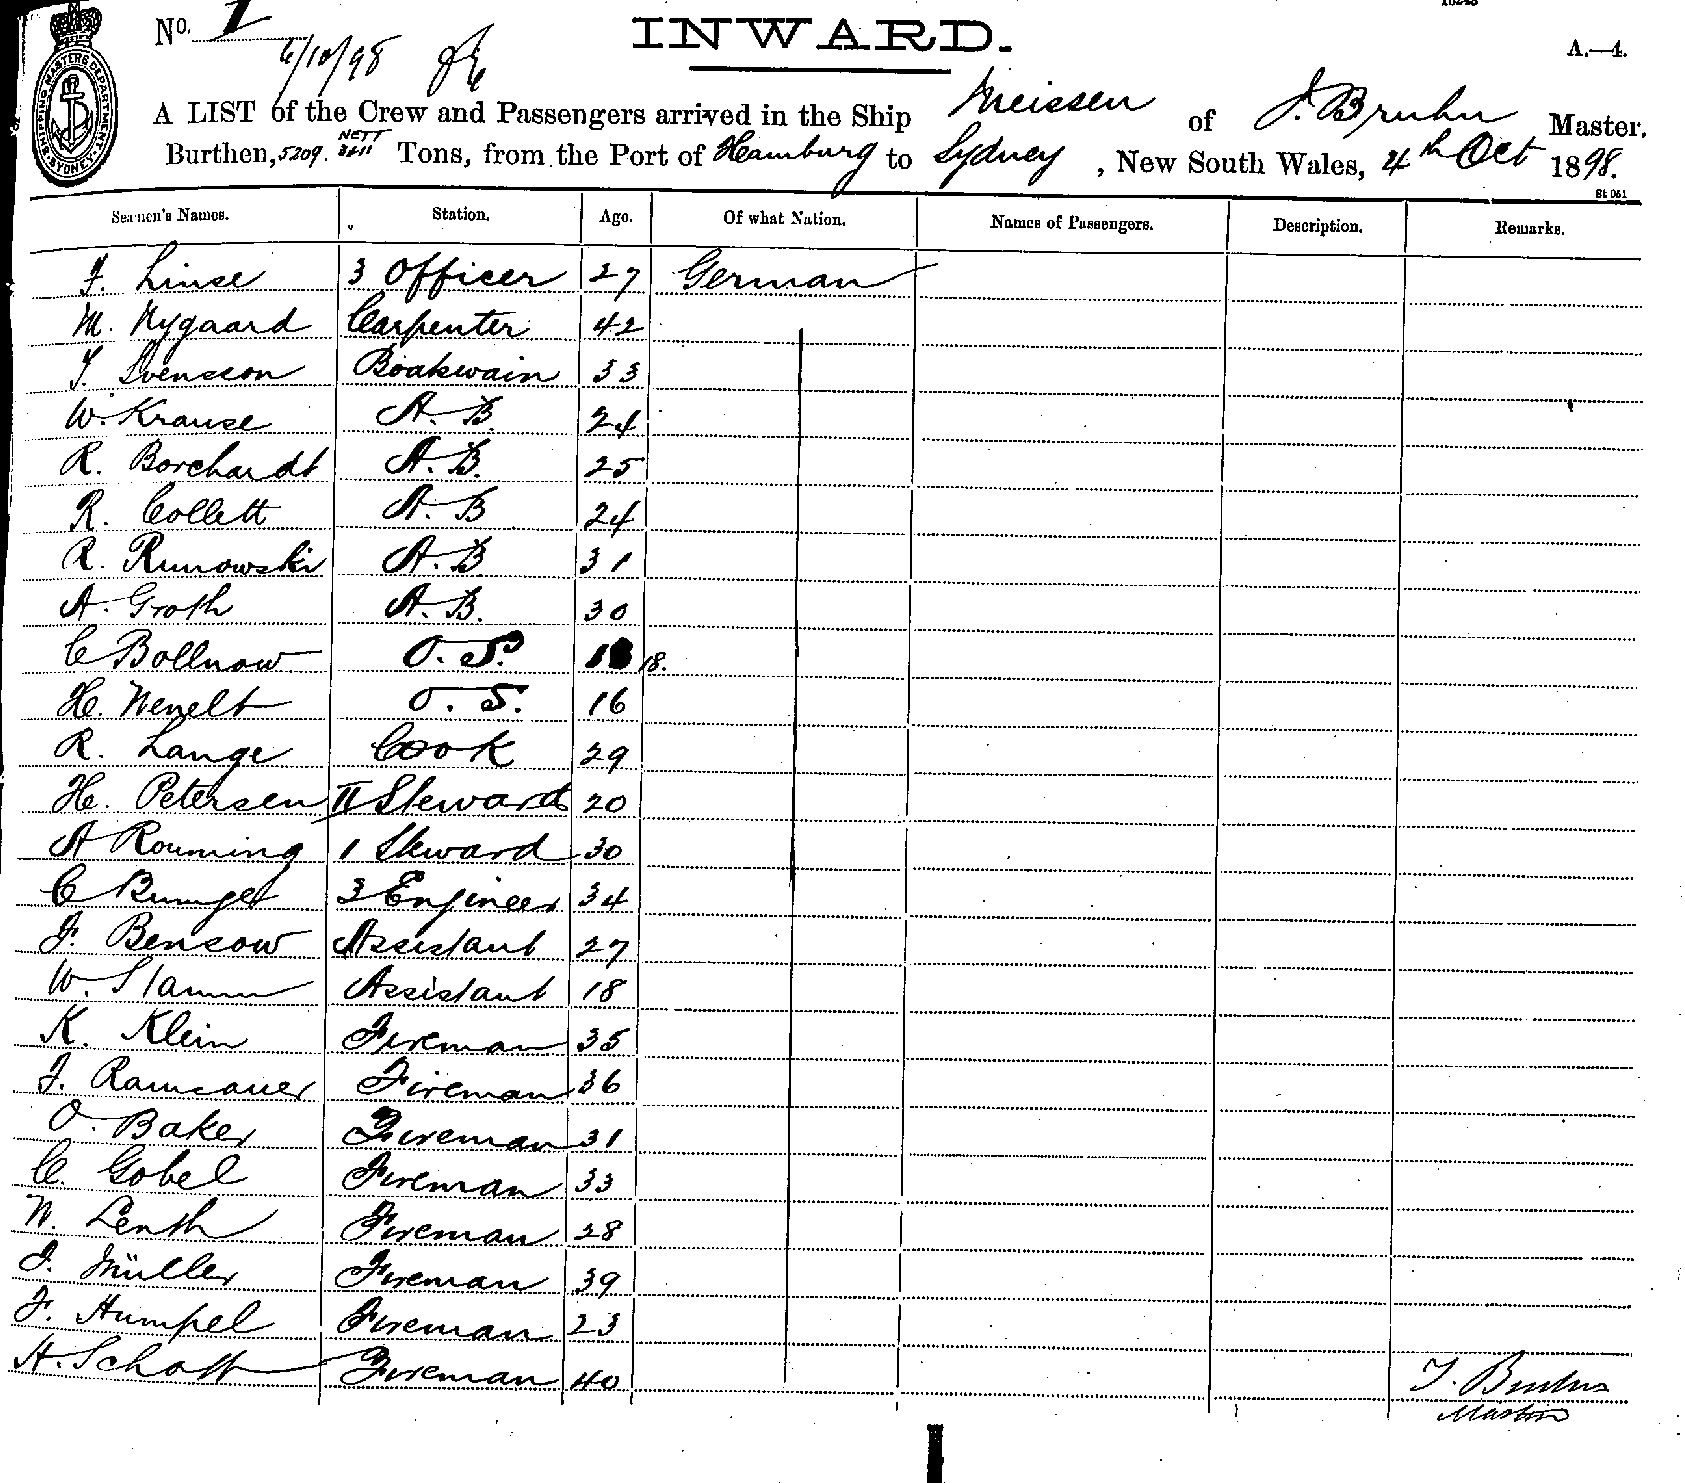 No. I
INWARD.
A.—4.
6/10/98
A LIST of the Crew and Passengers arrived in the Ship Meissen of J. Bruhn Master.
Burthen, 5209. NETT Tons, from the Port of Hamburg to Sydney, New South Wales, 4th Oct 1898.
SHIPPING MASTERS DEPARTMENT SYDNEY
St 061
Seamen's Names. Station. Age. Of what Nation. Names of Passengers. Description. Remarks.
F. Linse 3 Officer 27 German
M. Nygaard Carpenter 42
T. Svensson Boatswain 33
W. Krause A. B. 24
R. Borchardt A. B. 25
R. Collett A. B 24
R. Runowski A. B 31
A. Groth A. B. 30
C Bollnow O. S. 18.
H. Wenelt O. S. 16
R. Lange Cook 29
H. Petersen II Steward 20
A Rouming 1 Steward 30
C Bunge 3 Engineer 34
F. Bensow Assistant 27
W. Stamm Assistant 18
K. Klein Fireman 35
J. Ramsauer Fireman 36
O. Baker Fireman 31
C. Gobel Fireman 33
W. Lenth Fireman 28
J. Müller Fireman 39
F. Humpel Fireman 23
H. Schott Fireman 40
J. Bruhn
Master